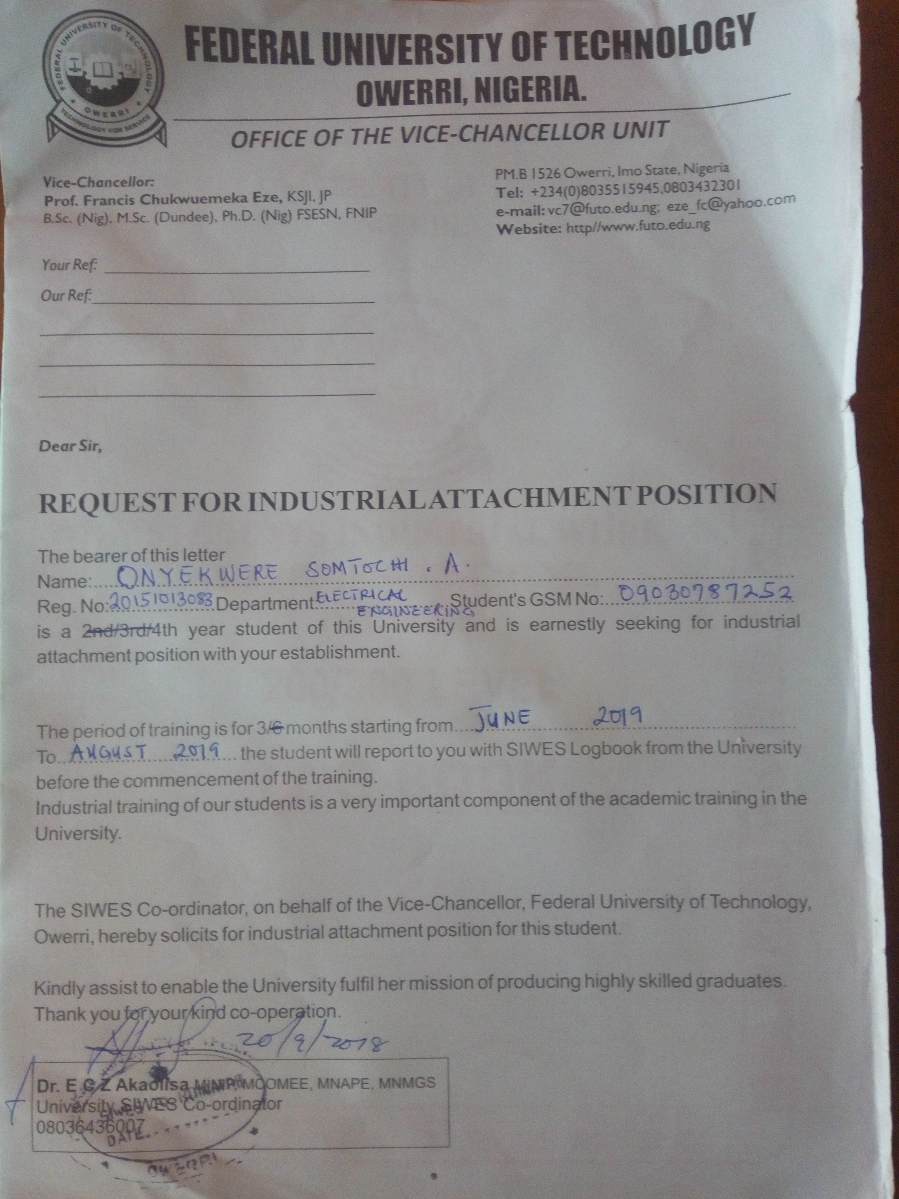 FEDERAL UNIVERSITY OF TECHNOLOGY
OWERRI
TECHNOLOGY FOR SERVICE
FEDERAL UNIVERSITY OF TECHNOLOGY
OWERRI, NIGERIA.
OFFICE OF THE VICE-CHANCELLOR UNIT
Vice-Chancellor:
Prof. Francis Chukwuemeka Eze, KSJI, JP
B.Sc. (Nig), M.Sc. (Dundee), Ph.D. (Nig) FSESN, FNIP
PM.B 1526 Owerri, Imo State, Nigeria
Tel: +234(0)8035515945,0803432301
e-mail: vc7@futo.edu.ng; eze_fc@yahoo.com
Website: http//www.futo.edu.ng
Your Ref:
Our Ref:
Dear Sir,
REQUEST FOR INDUSTRIAL ATTACHMENT POSITION
The bearer of this letter
Name: ONYEKWERE SOMTOCHI . A.
Reg. No: 20151013083 Department ELECTRICAL ENGINEERING Student's GSM No: 09030787252
is a 2nd/3rd/4th year student of this University and is earnestly seeking for industrial
attachment position with your establishment.
The period of training is for 3/6 months starting from JUNE 2019
To AUGUST 2019 the student will report to you with SIWES Logbook from the University
before the commencement of the training.
Industrial training of our students is a very important component of the academic training in the
University.
The SIWES Co-ordinator, on behalf of the Vice-Chancellor, Federal University of Technology,
Owerri, hereby solicits for industrial attachment position for this student.
Kindly assist to enable the University fulfil her mission of producing highly skilled graduates.
Thank you for your kind co-operation.
20/9/2018
Dr. E C Z Akaolisa MOOMEE, MNAPE, MNMGS
University SIWES Co-ordinator
08036436007
DATE
OWERRI